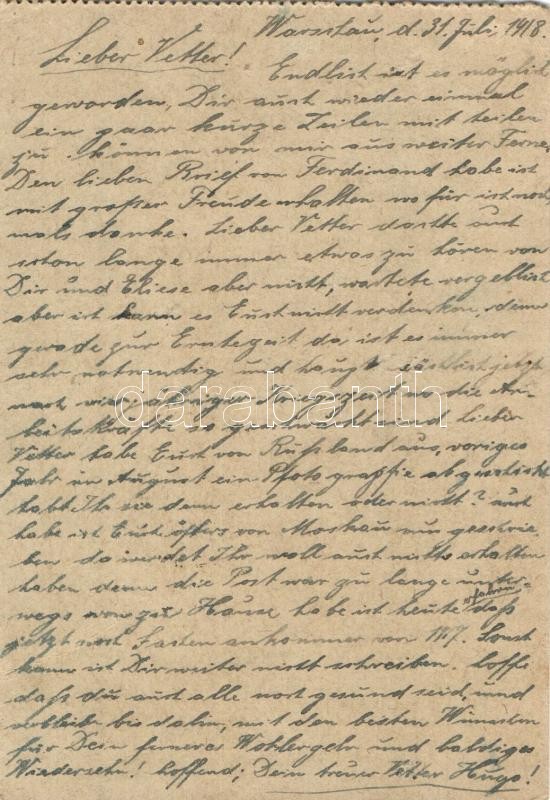 Warschau, d. 31. Juli, 1918.
Lieber Vetter!
Endlich ist es möglich
geworden, Dir auch wieder einmal
ein paar kurze Zeilen mit teilen
zu können von mir aus weiter Ferne.
Den lieben Brief von Ferdinand habe ich
mit großer Freude erhalten wo für ich noch
mals danke. Lieber Vetter dachte auch
schon lange immer etwas zu hören von
Dir und Eliese aber nicht, wartete vergeblich
aber ich kann es Euch nicht verdenken, denn
gerade zur Erntezeit da ist es immer
sehr notwendig und hauptsächlich jetzt
nach vier jähriger Kriegszeit wo die Ar-
beitskräfte so geschwächt sind lieber
Vetter habe Euch von Rußland aus, voriges
Jahr im August ein Photographie abgeschickt
habt Ihr sie denn erhalten oder nicht? auch
habe ich Euch öfters von Moskau aus geschrie-
ben da werdet Ihr woll auch nichts erhalten
haben denn die Post war zu lange unter-
wegs von zu Hause habe ich heute erfahren daß
jetzt noch Karten ankommen von 1917. Sonst
kann ich Dir weiter nicht schreiben. hoffe
daß du auch alle noch gesund seid, und
verbleibe bis dahin, mit den besten Wünschen
für Dein ferneres Wohlergehn und baldiges
Wiedersehn! hoffend: Dein treuer Vetter Hugo!
darabanth